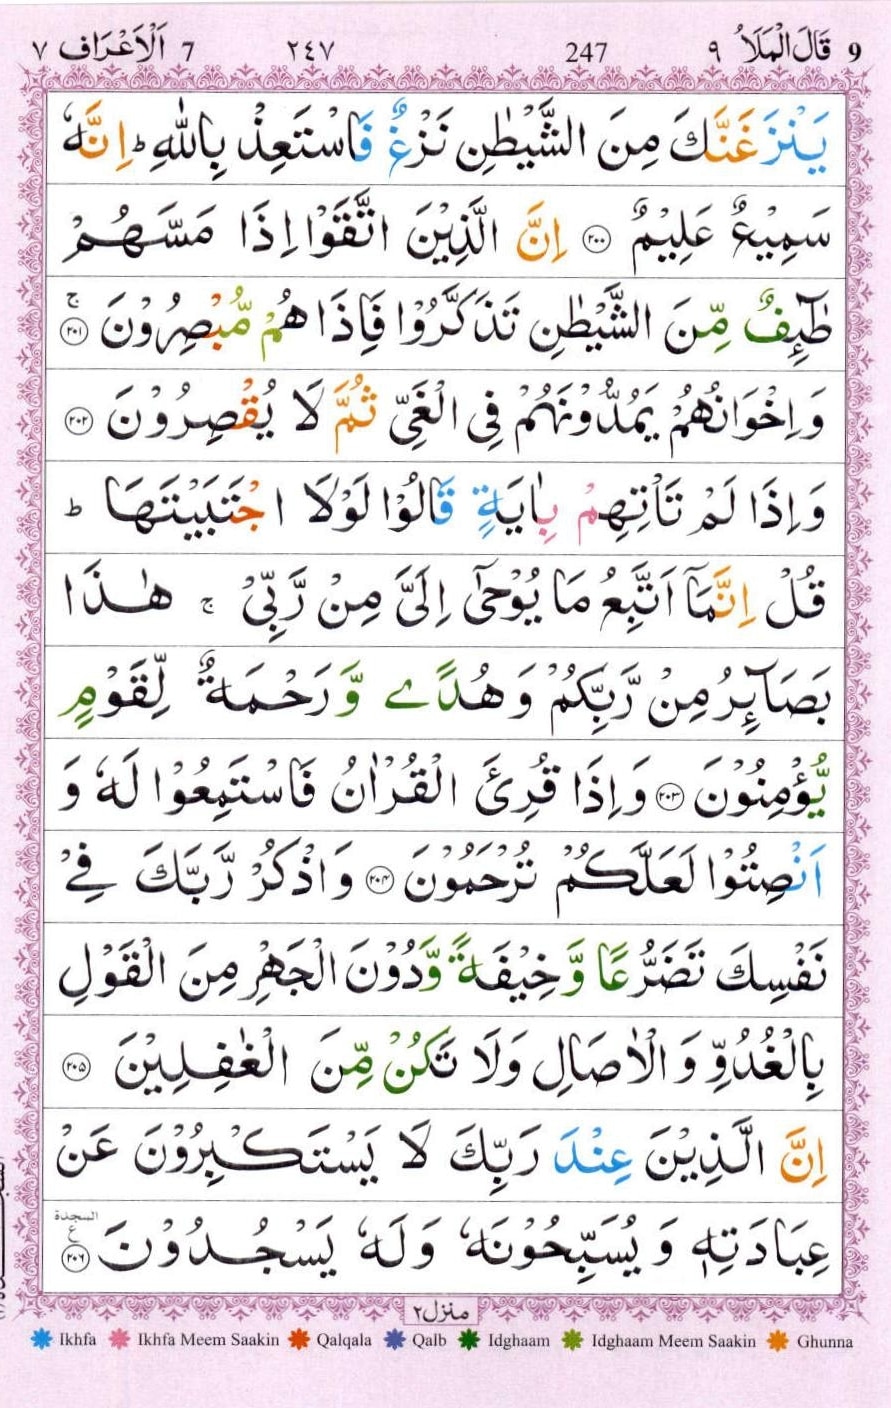 اَلْاَعْرَاف ٧ 7 ٢٤٧ 247 قَالَ الْمَلَاُ ٩ 9
يَنْزَغَنَّكَ مِنَ الشَّيْطٰنِ نَزْغٌ فَاسْتَعِذْ بِاللّٰهِ ؕ اِنَّهٗ
سَمِيْعٌ عَلِيْمٌ ﴿۲۰۰﴾ اِنَّ الَّذِيْنَ اتَّقَوْا اِذَا مَسَّهُمْ
طٰٓئِفٌ مِّنَ الشَّيْطٰنِ تَذَكَّرُوْا فَاِذَا هُمْ مُّبْصِرُوْنَ ۚ ﴿۲۰۱﴾
وَاِخْوَانُهُمْ يَمُدُّوْنَهُمْ فِى الْغَىِّ ثُمَّ لَا يُقْصِرُوْنَ ﴿۲۰۲﴾
وَاِذَا لَمْ تَاْتِهِمْ بِاٰيَةٍ قَالُوْا لَوْلَا اجْتَبَيْتَهَا ؕ
قُلْ اِنَّمَاۤ اَتَّبِعُ مَا يُوْحٰٓى اِلَىَّ مِنْ رَّبِّىْ ۚ هٰذَا
بَصَآئِرُ مِنْ رَّبِّكُمْ وَهُدًى وَّرَحْمَةٌ لِّقَوْمٍ
يُّؤْمِنُوْنَ ﴿۲۰۳﴾ وَاِذَا قُرِئَ الْقُرْاٰنُ فَاسْتَمِعُوْا لَهٗ وَ
اَنْصِتُوْا لَعَلَّكُمْ تُرْحَمُوْنَ ﴿۲۰۴﴾ وَاذْكُرْ رَّبَّكَ فِىْ
نَفْسِكَ تَضَرُّعًا وَّخِيْفَةً وَّدُوْنَ الْجَهْرِ مِنَ الْقَوْلِ
بِالْغُدُوِّ وَالْاٰصَالِ وَلَا تَكُنْ مِّنَ الْغٰفِلِيْنَ ﴿۲۰۵﴾
اِنَّ الَّذِيْنَ عِنْدَ رَبِّكَ لَا يَسْتَكْبِرُوْنَ عَنْ
عِبَادَتِهٖ وَيُسَبِّحُوْنَهٗ وَلَهٗ يَسْجُدُوْنَ ﴿۲۰۶﴾ السجدة ع
منزل ٢
Ikhfa Ikhfa Meem Saakin Qalqala Qalb Idghaam Idghaam Meem Saakin Ghunna